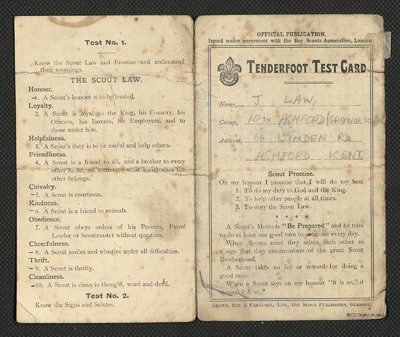 Test No. 1.
Know the Scout Law and Promise and understand
their meanings.
THE SCOUT LAW.
Honour.
1. A Scout's honour is to be trusted.
Loyalty.
2. A Scout is loyal to the King, his Country, his
Officers, his Parents, his Employers, and to
those under him.
Helpfulness.
3. A Scout's duty is to be useful and help others.
Friendliness.
4. A Scout is a friend to all, and a brother to every
other Scout, no matter to what social class the
other belongs.
Chivalry.
5. A Scout is courteous.
Kindness.
6. A Scout is a friend to animals.
Obedience.
7. A Scout obeys orders of his Parents, Patrol
Leader or Scoutmaster without question.
Cheerfulness.
8. A Scout smiles and whistles under all difficulties.
Thrift.
9. A Scout is thrifty.
Cleanliness.
10. A Scout is clean in thought, word and deed.
Test No. 2.
Know the Signs and Salutes.
OFFICIAL PUBLICATION.
Issued under agreement with the Boy Scouts Association, London.
TENDERFOOT TEST CARD
Name, J. LAW,
Group, 10TH ASHFORD (GRAMMAR
Address, 16 LINDEN RD
ASHFORD KENT.
Scout Promise.
On my honour I promise that I will do my best
1. To do my duty to God and the King.
2. To help other people at all times.
3. To obey the Scout Law.
* * *
A Scout's Motto is "Be Prepared" and he tries
to do at least one good turn to someone every day.
When Scouts meet they salute each other as
a sign that they are members of the great Scout
Brotherhood.
A Scout takes no fee or rewards for doing a
good turn.
When a Scout says on my honour "it is so," it
means it is so."
BROWN, SON & FERGUSON, LTD., THE SCOUT PUBLISHERS, GLASGOW.